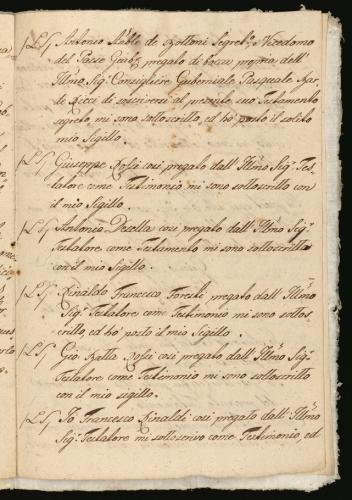 (L.S.) Antonio Nob.e de Bottoni Segret.o, e Vicedomo
del Paese Gub.e, pregato di bocca propria dell'
Illmo Sig.r Consigliere Guberniale Pasquale
de Ricci di soscriversi al presente suo Testamento
segreto, mi sono sottoscritto, ed hò posto il solito
mio Sigillo.
(L.S.) Giuseppe Rossi così pregato dall' Illmo Sig.r Tes-
tatore come Testimonio mi sono sottoscritto con
il mio Sigillo.
(L.S.) Antonio Desella così pregato dall' Illmo Sig.r
Testatore come Testamento mi sono sottoscritto
con il mio Sigillo.
(L.S.) Rinaldo Francesco Foresti pregato dall' Illmo
Sig.r Testatore come Testimonio mi sono sottos
critto ed hò posto il mio Sigillo.
(L.S.) Gio Batta Rossi così pregato dall' Illmo Sig.r
Testatore come Testimonio mi sono sottoscritto
con il mio sigillo.
(L.S.) Io Francesco Rinaldi così pregato dall' Illmo
Sig.r Testatore mi sottoscrivo come Testimonio, ed